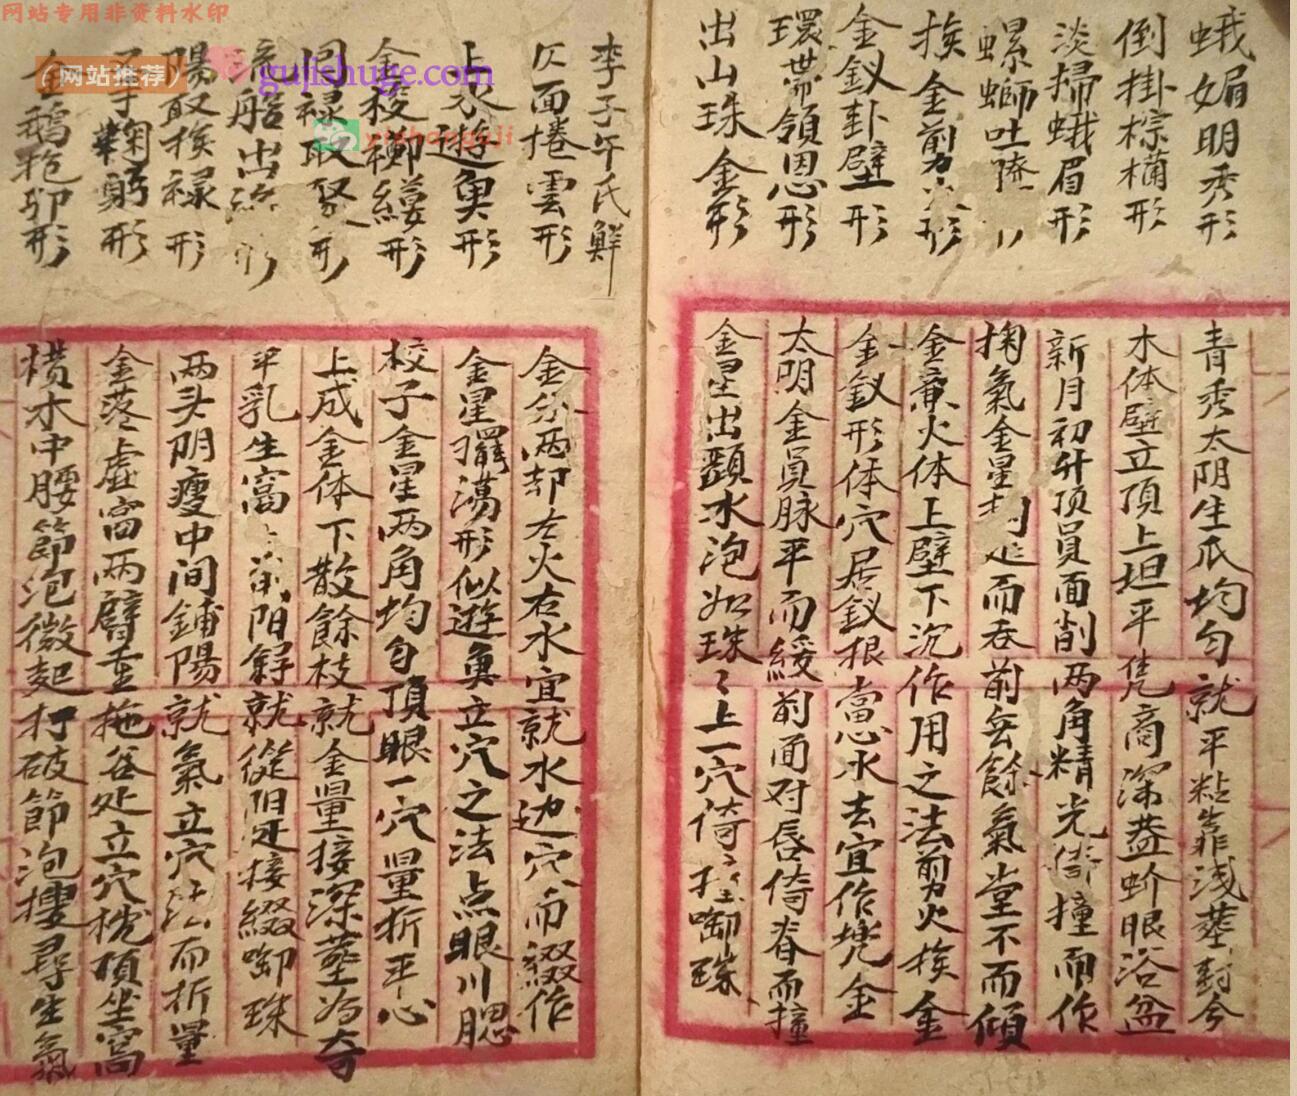 网站专用非资料水印
(网站推荐)
gujishuge.com
yishanguji
蛾媚明秀形
倒掛棕桶形
淡掃蛾眉形
螺螄吐
挨金剪火形
金釵卦壁形
環帶領恩形
出山珠金形
青秀太阴生瓜均匀就平粘靠浅塟封今
木体壁立頂上坦平凭商深塟蚧眼浴盆
新月初升顶員面削两角精光倚撞而作
掬氣金星而吞前岳餘氣堂不而傾
金兼火体上壁下沉作用之法剪火挨金
金釵形体穴居釵根當心水去宜作堯金
太明金員脉平而緩前面对唇倚脊而撞
金星出頭水泡如珠〻上一穴倚啣珠
李子午氏鮮
仄面捲雲形
上水遊魚形
金梭擲縷形
同祿取聚形
流船出形
陽取挨祿形
手鞠躬形
金鵝抱卵形
金分两却左火右水宜就水边穴而綴作
金星擺漡形似遊魚立穴之法点眼川腮
校子金星两角均匀頂眼一穴量折平心
上成金体下散餘枝就金量接深塟为奇
平乳生窩阳就從阳接綴啣珠
两头阴瘦中间鋪陽就氣立穴法而折量
金落虛窩两臂垂拖谷处立穴枕頂坐窩
横木中腰節泡微起打破節泡摟尋生氣